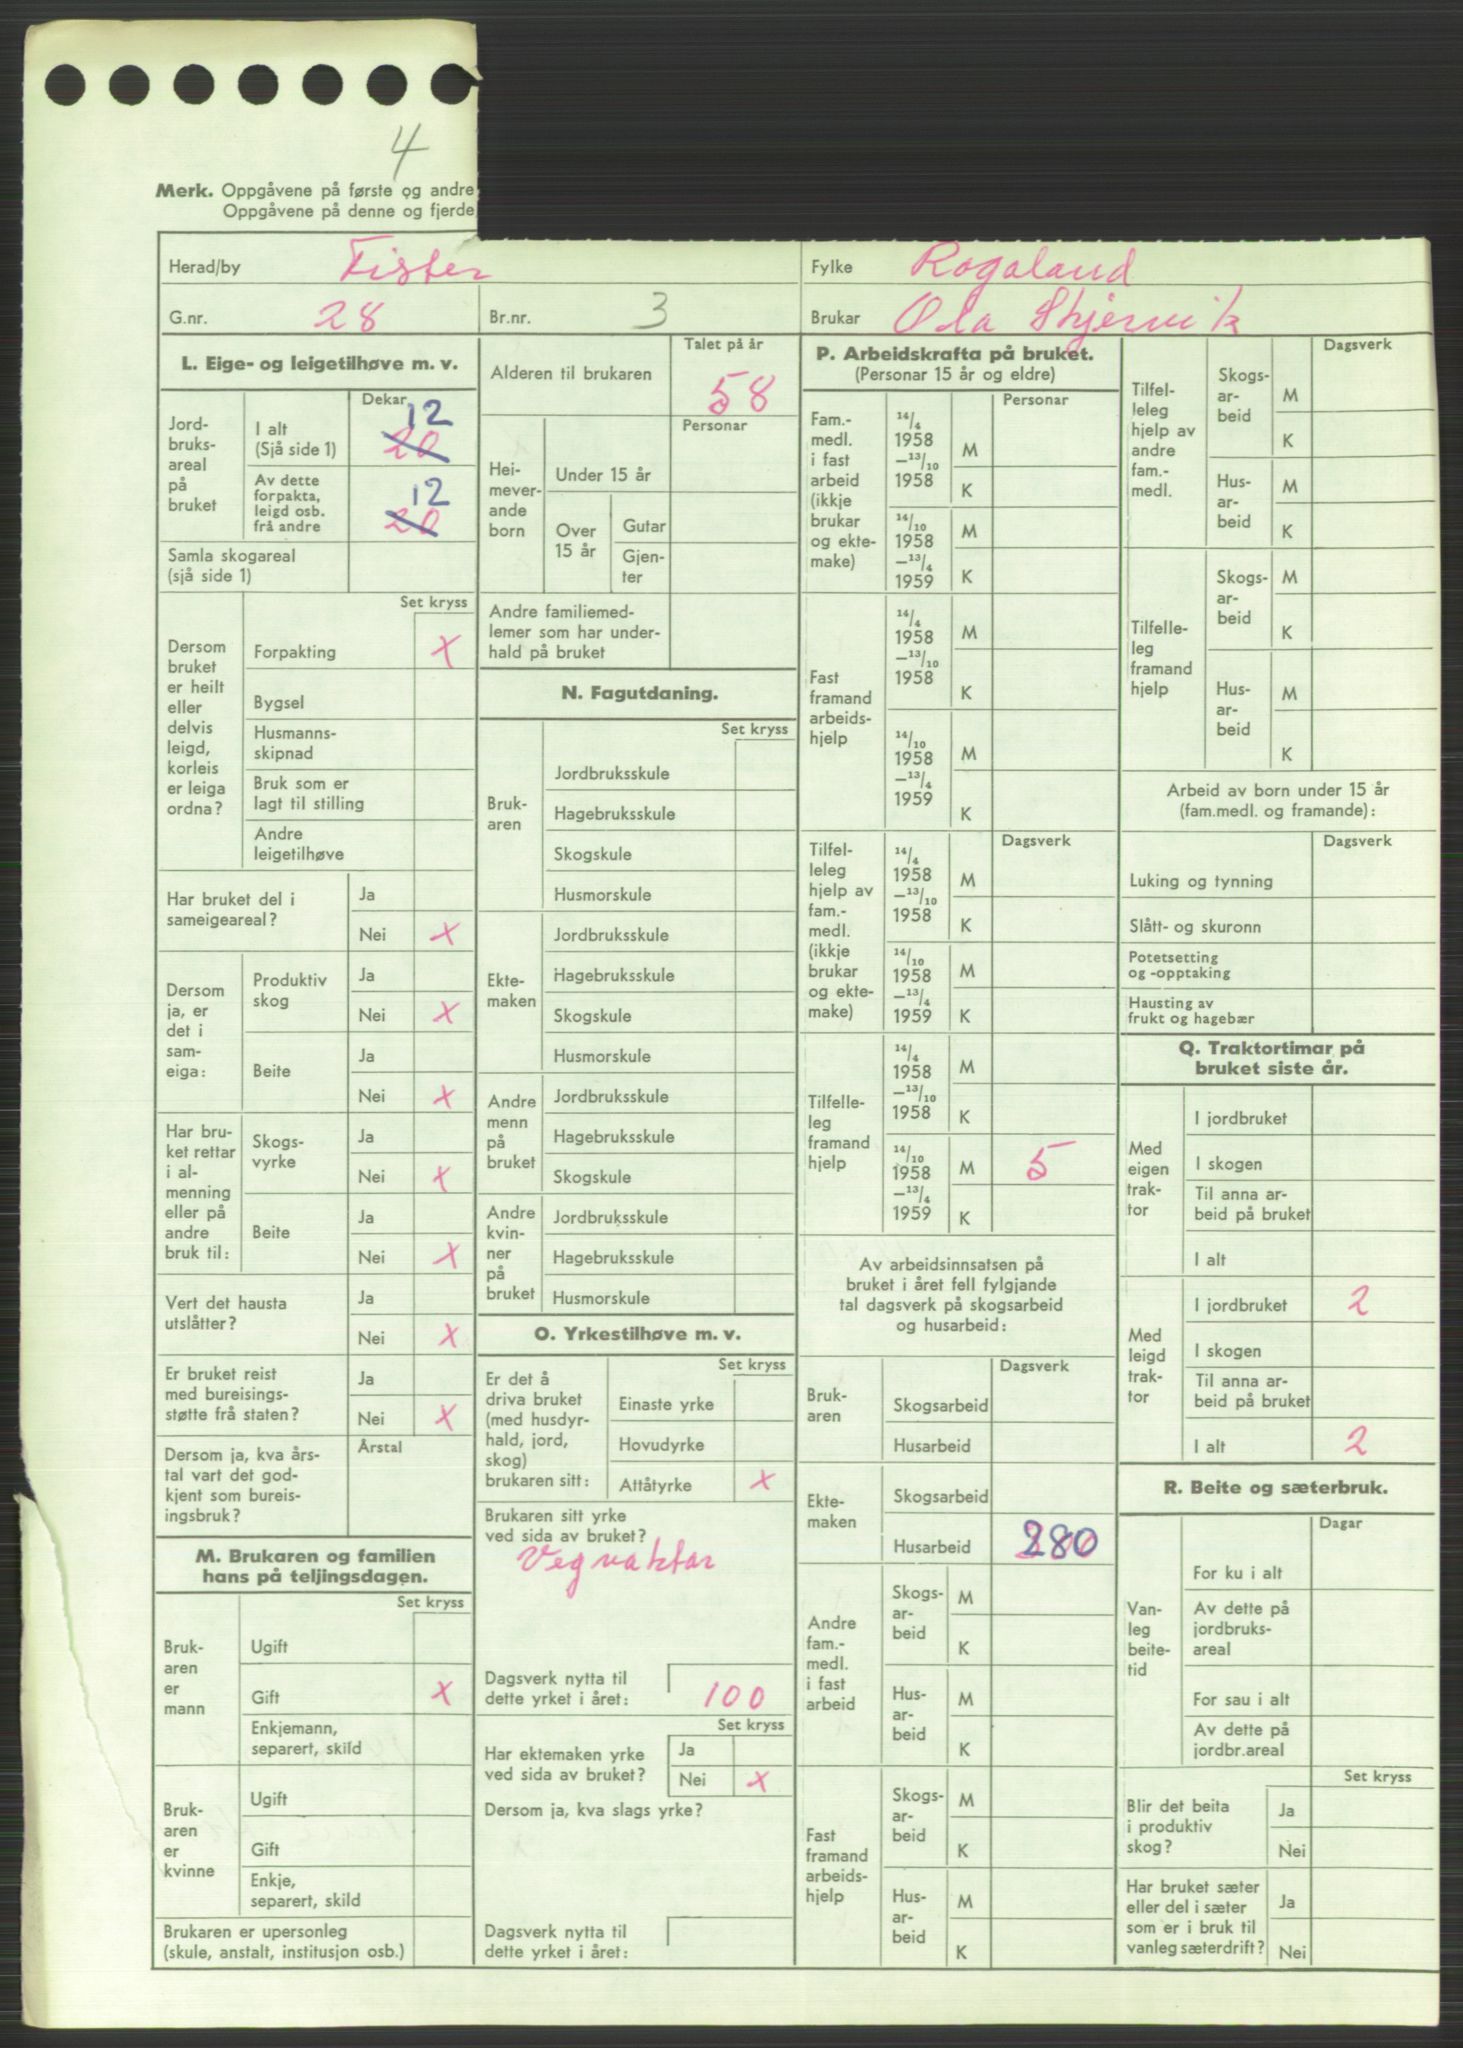 4
Merk. Oppgåvene på første og andre
Oppgåvene på denne og fjerde
Herad/by Fister Fylke Rogaland
G.nr. 28 Br.nr. 3 Brukar Ola Skjervik
L. Eige- og leigetilhøve m. v.
Dekar
Jord-
bruks-
areal
på
bruket
I alt
(Sjå side 1)
12
20
Av dette
forpakta,
leigd osb.
frå andre
12
20
Samla skogareal
(sjå side 1)
Set kryss
Dersom
bruket
er heilt
eller
delvis
leigd,
korleis
er leiga
ordna?
Forpakting X
Bygsel
Husmanns-
skipnad
Bruk som er
lagt til stilling
Andre
leigetilhøve
Har bruket del i
sameigeareal?
Ja
Nei X
Dersom
ja, er
det i
sam-
eiga:
Produktiv
skog
Ja
Nei X
Beite
Ja
Nei X
Har bru-
ket rettar
i al-
menning
eller på
andre
bruk til:
Skogs-
vyrke
Ja
Nei X
Beite
Ja
Nei X
Vert det hausta
utslåtter?
Ja
Nei X
Er bruket reist
med bureisings-
støtte frå staten?
Ja
Nei X
Dersom ja, kva års-
tal vart det god-
kjent som bureis-
ingsbruk?
Årstal
M. Brukaren og familien
hans på teljingsdagen.
Set kryss
Bruk-
aren
er
mann
Ugift
Gift X
Enkjemann,
separert, skild
Bruk-
aren
er
kvinne
Ugift
Gift
Enkje,
separert, skild
Brukaren er upersonleg
(skule, anstalt, institusjon osb.)
Talet på år
Alderen til brukaren 58
Personar
Hei-
mever-
ande
born
Under 15 år
Over
15 år
Gutar
Gjen-
ter
Andre familiemed-
lemer som har under-
hald på bruket
N. Fagutdaning.
Set kryss
Bruk-
aren
Jordbruksskule
Hagebruksskule
Skogskule
Husmorskule
Ekte-
maken
Jordbruksskule
Hagebruksskule
Skogskule
Husmorskule
Andre
menn
på
bruket
Jordbruksskule
Hagebruksskule
Skogskule
Andre
kvin-
ner
på
bruket
Jordbruksskule
Hagebruksskule
Husmorskule
O. Yrkestilhøve m. v.
Set kryss
Er det å
driva bruket
(med husdyr-
hald, jord,
skog)
brukaren sitt:
Einaste yrke
Hovudyrke
Attåtyrke X
Brukaren sitt yrke
ved sida av bruket?
Vegvaktar
Dagsverk nytta til
dette yrket i året: 100
Set kryss
Har ektemaken yrke
ved sida av bruket?
Ja
Nei X
Dersom ja, kva slags yrke?
Dagsverk nytta til
dette yrket i året:
P. Arbeidskrafta på bruket.
(Personar 15 år og eldre)
Personar
Fam.-
medl.
i fast
arbeid
(ikkje
brukar
og ekte-
make)
14/4
1958
—13/10
1958
M
K
14/10
1958
—13/4
1959
M
K
Fast
framand
arbeids-
hjelp
14/4
1958
—13/10
1958
M
K
14/10
1958
—13/4
1959
M
K
Dagsverk
Tilfel-
leleg
hjelp av
fam.-
medl.
(ikkje
brukar
og ekte-
make)
14/4
1958
—13/10
1958
M
K
14/10
1958
—13/4
1959
M
K
Tilfelle-
leg
framand
hjelp
14/4
1958
—13/10
1958
M
K
14/10
1958
—13/4
1959
M 5
K
Av arbeidsinnsatsen på
bruket i året fell fylgjande
tal dagsverk på skogsarbeid
og husarbeid:
Dagsverk
Bruk-
aren
Skogsarbeid
Husarbeid
Ekte-
maken
Skogsarbeid
Husarbeid 280
Andre
fam.-
medl.
i fast
arbeid
Skogs-
ar-
beid
M
K
Hus-
ar-
beid
M
K
Fast
framand
arbeids-
hjelp
Skogs-
ar-
beid
M
K
Hus-
ar-
beid
M
K
Dagsverk
Tilfel-
leleg
hjelp av
andre
fam.-
medl.
Skogs-
ar-
beid
M
K
Hus-
ar-
beid
M
K
Tilfelle-
leg
framand
hjelp
Skogs-
ar-
beid
M
K
Hus-
ar-
beid
M
K
Arbeid av born under 15 år
(fam.medl. og framande):
Dagsverk
Luking og tynning
Slått- og skuronn
Potetsetting
og -opptaking
Hausting av
frukt og hagebær
Q. Traktortimar på
bruket siste år.
Med
eigen
trak-
tor
I jordbruket
I skogen
Til anna ar-
beid på bruket
I alt
Med
leigd
trak-
tor
I jordbruket 2
I skogen
Til anna ar-
beid på bruket
I alt 2
R. Beite og sæterbruk.
Dagar
Van-
leg
beite-
tid
For ku i alt
Av dette på
jordbruks-
areal
For sau i alt
Av dette på
jordbr.areal
Set kryss
Blir det beita
i produktiv
skog?
Ja
Nei
Har bruket sæter
eller del i sæter
som er i bruk til
vanleg sæterdrift?
Ja
Nei